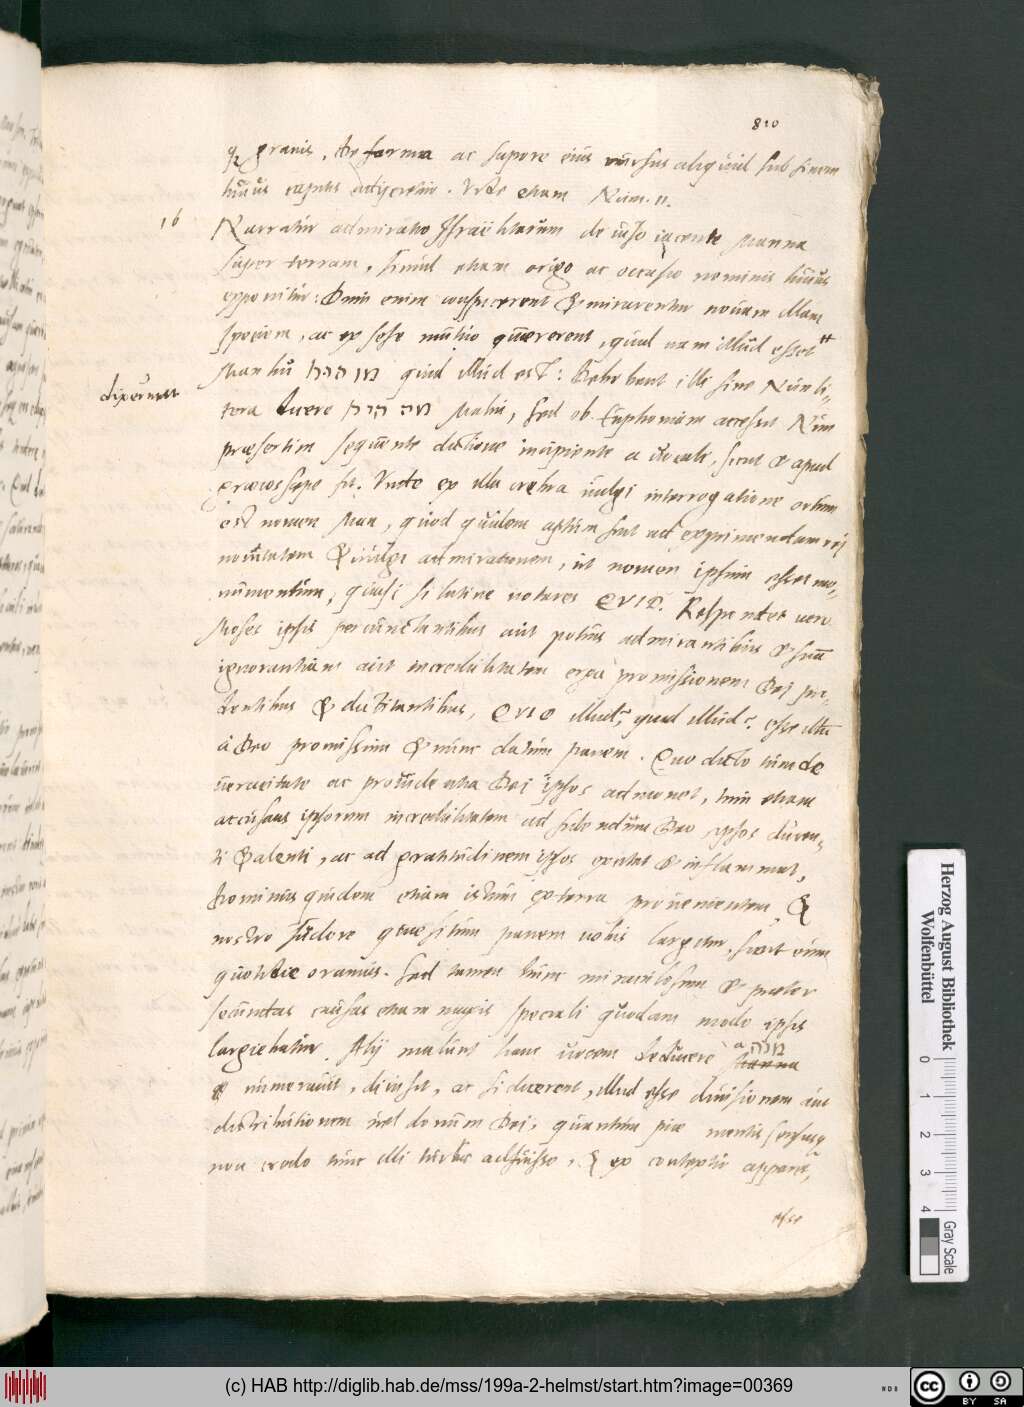 810
granis. De forma ac sapore eius rursus aliquid sub finem
huius capitis adijcetur. Vide etiam Num. 11.
16 Narratur admiratio Israëlitarum de viso iacente Manna
super terram, simul etiam origo ac occasio nominis huius
exponitur: Dum enim conspicerent & mirarentur novam illam
speciem, ac ex sese mutuo quererent, quid nam illud esset
dixerunt
Manhu מן הוא quid illud est: Debebant illi sine Nun li-
tera dicere מה הוא Mahu, sed ob Euphoniam accessit Nun
præsertim sequente dictione incipiente a vocali, sicut & apud
græcos sæpe fit. Unde ex illa crebra vulgi interrogatione ortum
est nomen Man, quod quidem aptum fuit ad exprimendam rei
novitatem & vulgi admirationem, ut nomen ipsum esset mo-
numentum, quasi si latine vocares QVID. Respondet vero
Moses ipsis percunctantibus aut potius admirantibus & suam
ignorantiam aut incredulitatem erga promissionem Dei pa-
tentibus & dubitantibus, QVID illud? quid illud? esse illum
à Deo promissum & nunc datum panem. Quo dicto eum de
veracitate ac providentia Dei ipsos admonet, tum etiam
accusans ipsorum incredulitatem ad fidendum Deo ipsos ducen-
ti & alenti, ac ad gratitudinem ipsos excitat & inflammat,
Dominus quidem etiam istum ex terra provenientem &
nostro sudore quæsitum panem nobis largitur, sicut enim
quotidie oramus. Sed tamen hunc miraculosum & præter
secundas causas etiam magis speciali quodam modo ipsis
largiebatur. Alij malunt hanc vocem deducere a מנה
numeravit, divisit, ac si dicerent, illud esse divisionem aut
distributionem vel donum Dei, quantum piæ mentis
non credo tunc illi turbæ adfuisse, ex contextu apparet,
esse
Herzog August Bibliothek
Wolfenbüttel
0 1 2 3 4
Gray Scale
(c) HAB http://diglib.hab.de/mss/199a-2-helmst/start.htm?image=00369
cc BY SA